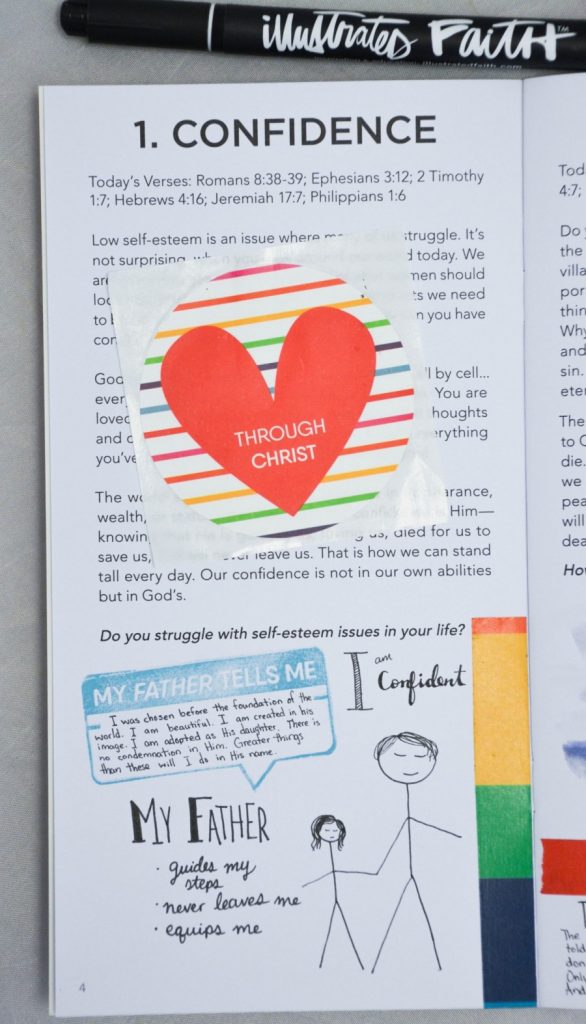 illustrated FAITH™
1. CONFIDENCE
Today's Verses: Romans 8:38-39; Ephesians 3:12; 2 Timothy
1:7; Hebrews 4:16; Jeremiah 17:7; Philippians 1:6
Low self-esteem is an issue where many of us struggle. It's
not surprising, when you today. We
are men should
we need
to b you have
con
God l by cell...
ever You are
loved thoughts
and everything
you've
The in appearance,
wealth, is Him—
knowing us, died for us to
save us, never leave us. That is how we can stand
tall every day. Our confidence is not in our own abilities
but in God's.
THROUGH
CHRIST
Do you struggle with self-esteem issues in your life?
MY FATHER TELLS ME
I was chosen before the foundation of the
world. I am beautiful. I am created in his
image. I am adopted as His daughter. There is
no condemnation in Him. Greater things
than these will I do in His name.
I am
Confident
MY FATHER
· guides my
steps
· never leaves me
· equips me
4
Tod
4:7;
Do y
the
villa
por
thin
Why
and
sin.
eter
The
to C
die.
we
pea
will
dea
How
T
The
told
don
Only
And